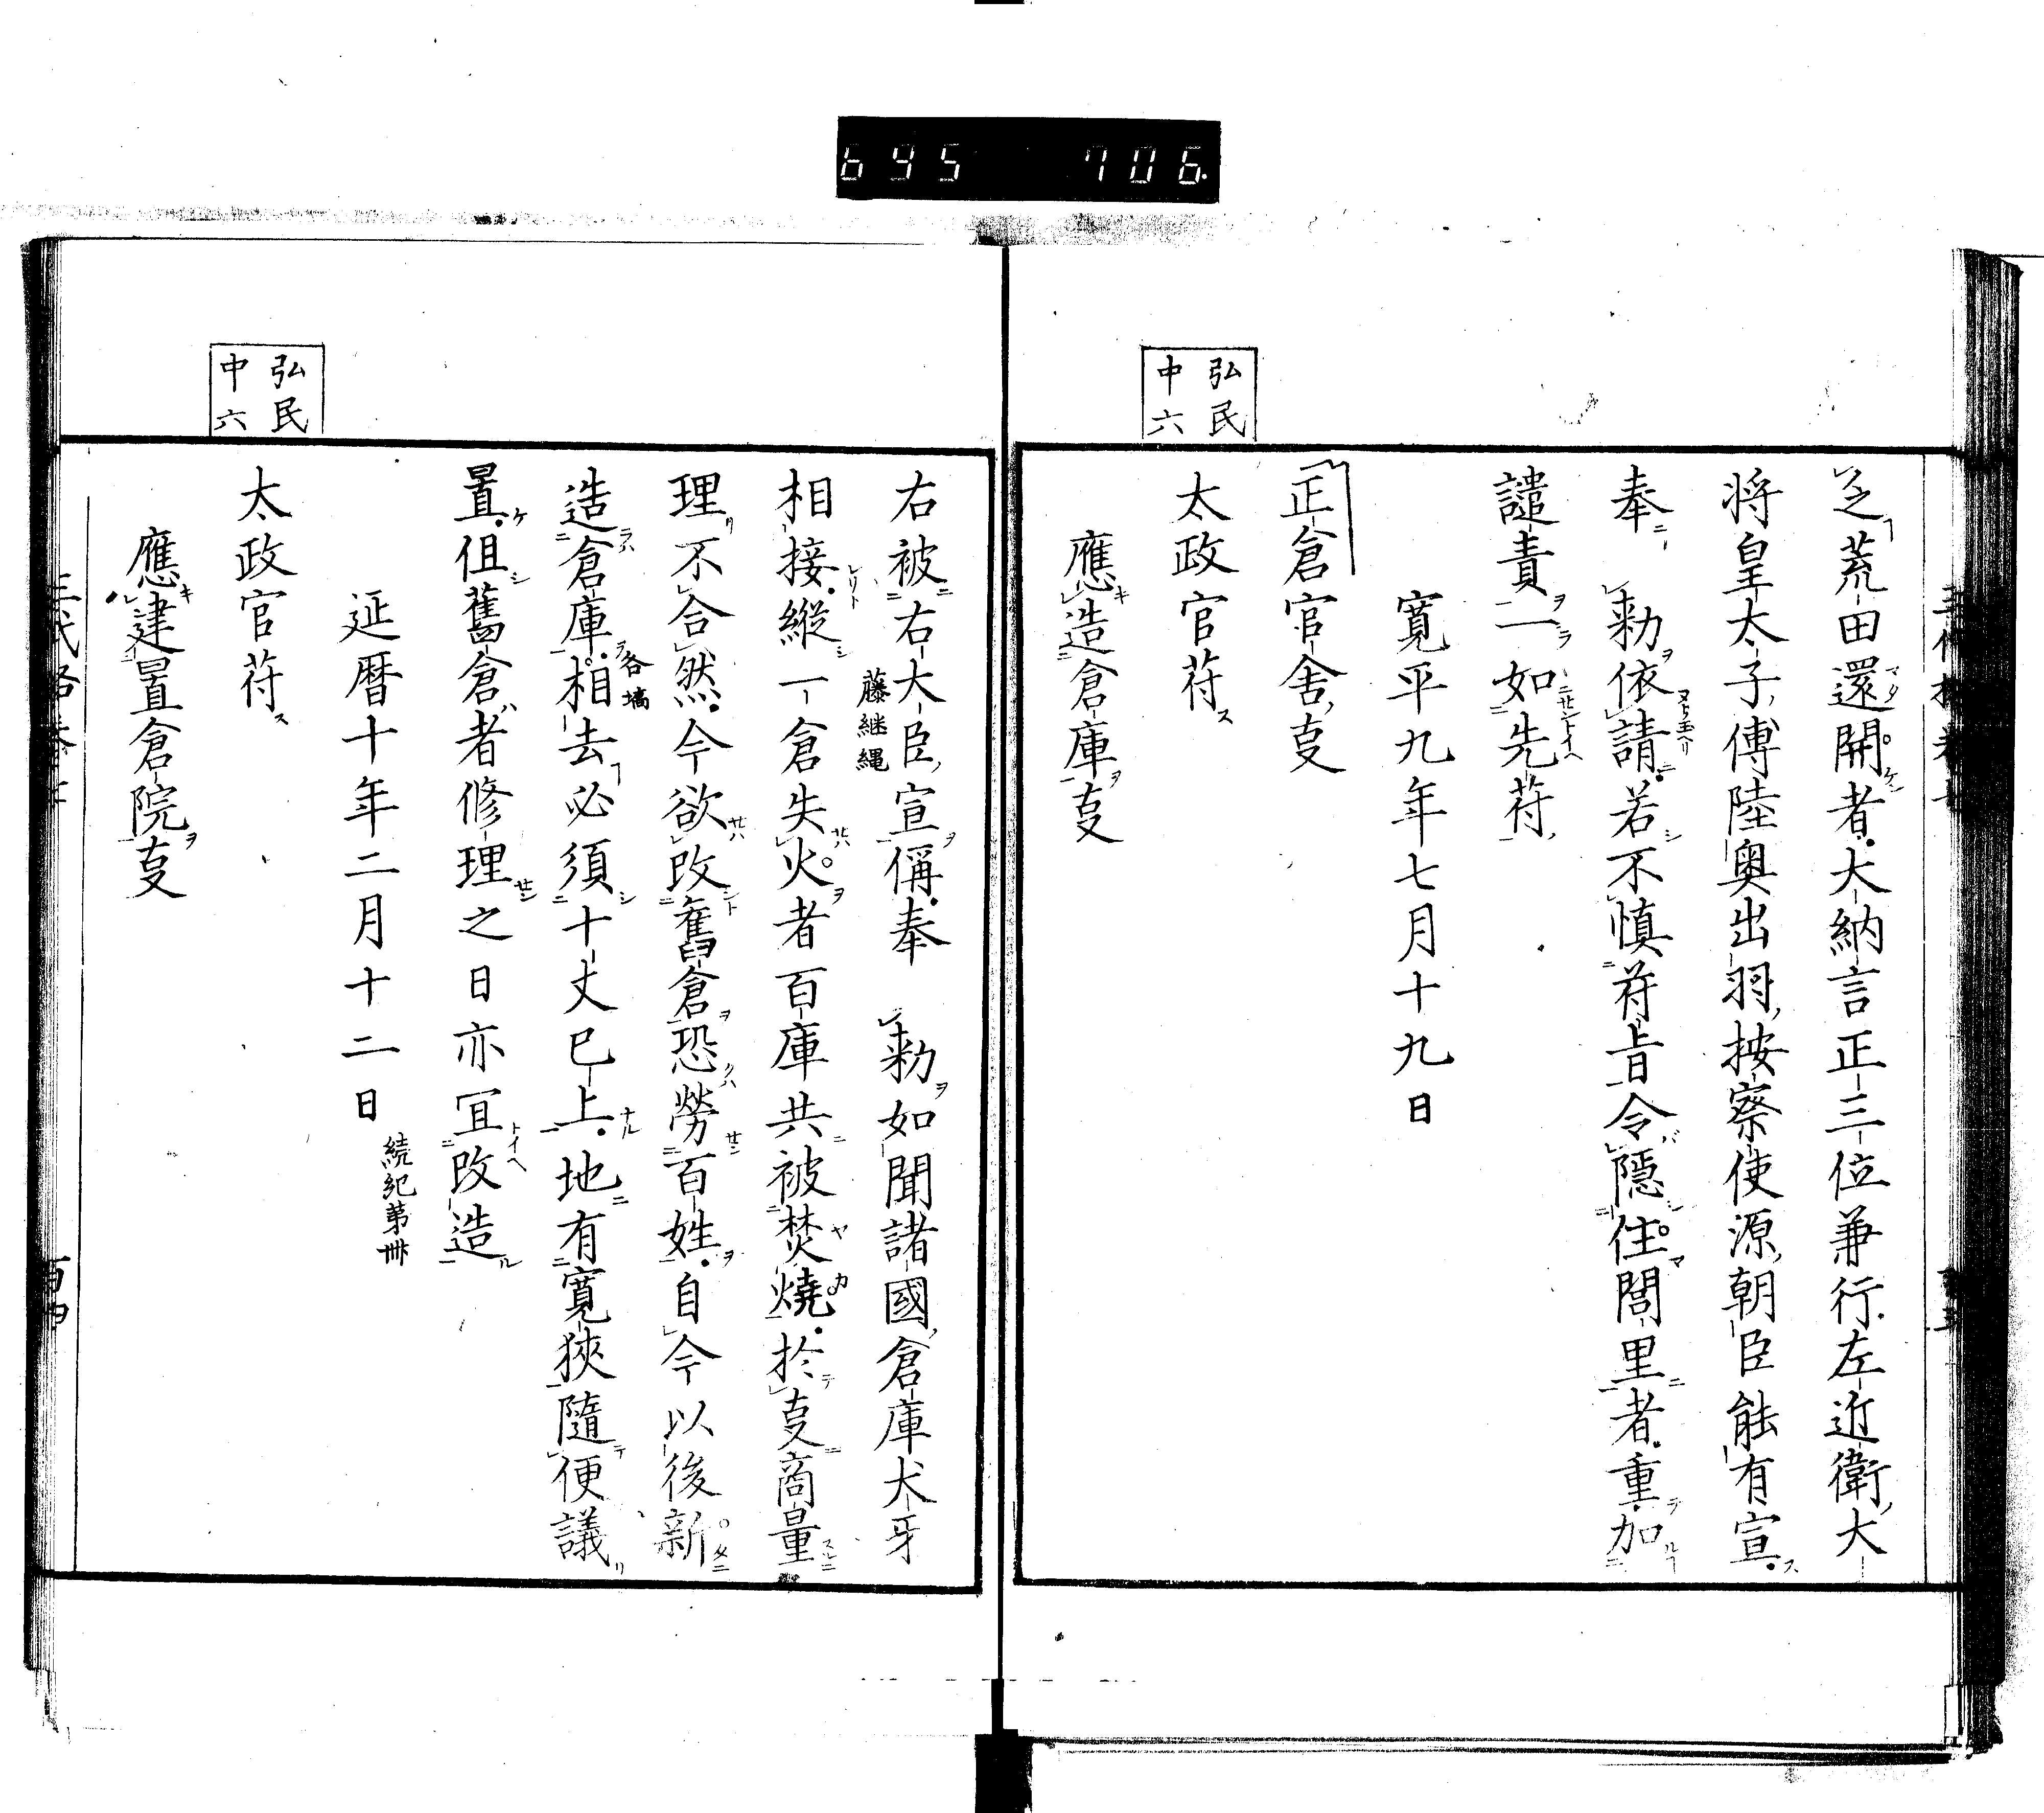 695 706.
弘民
中六
之荒田還開者大納言正三位兼行左近衛大
将皇太子傅陸奥出羽按察使源朝臣能有宣
奉　勅依請若不慎符旨令隱住閭里者重加
譴責一如先符
寛平九年七月十九日
正倉官舎叓
太政官符
應造倉庫叓
右被右大臣宣偁奉　勅如聞諸國倉庫犬牙
藤継縄
相接縦一倉失火者百庫共被焚燒於叓商量
理不合然今欲改舊倉恐勞百姓自今以後新
造倉庫相去必須十丈已上地有寛狹隨便議
各塙
置但舊倉者修理之日亦冝改造
延暦十年二月十二日
続紀第卌
太政官符
應建置倉院叓
弘民
中六